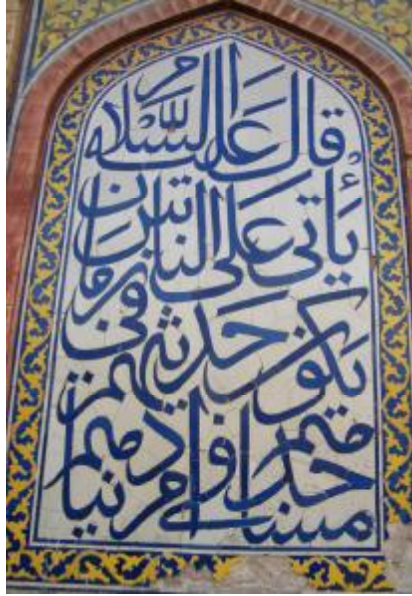 قال عليه السلام
يأتى على الناس زمان
يكون حديثهم فى
مساجدهم فى امر دنياهم